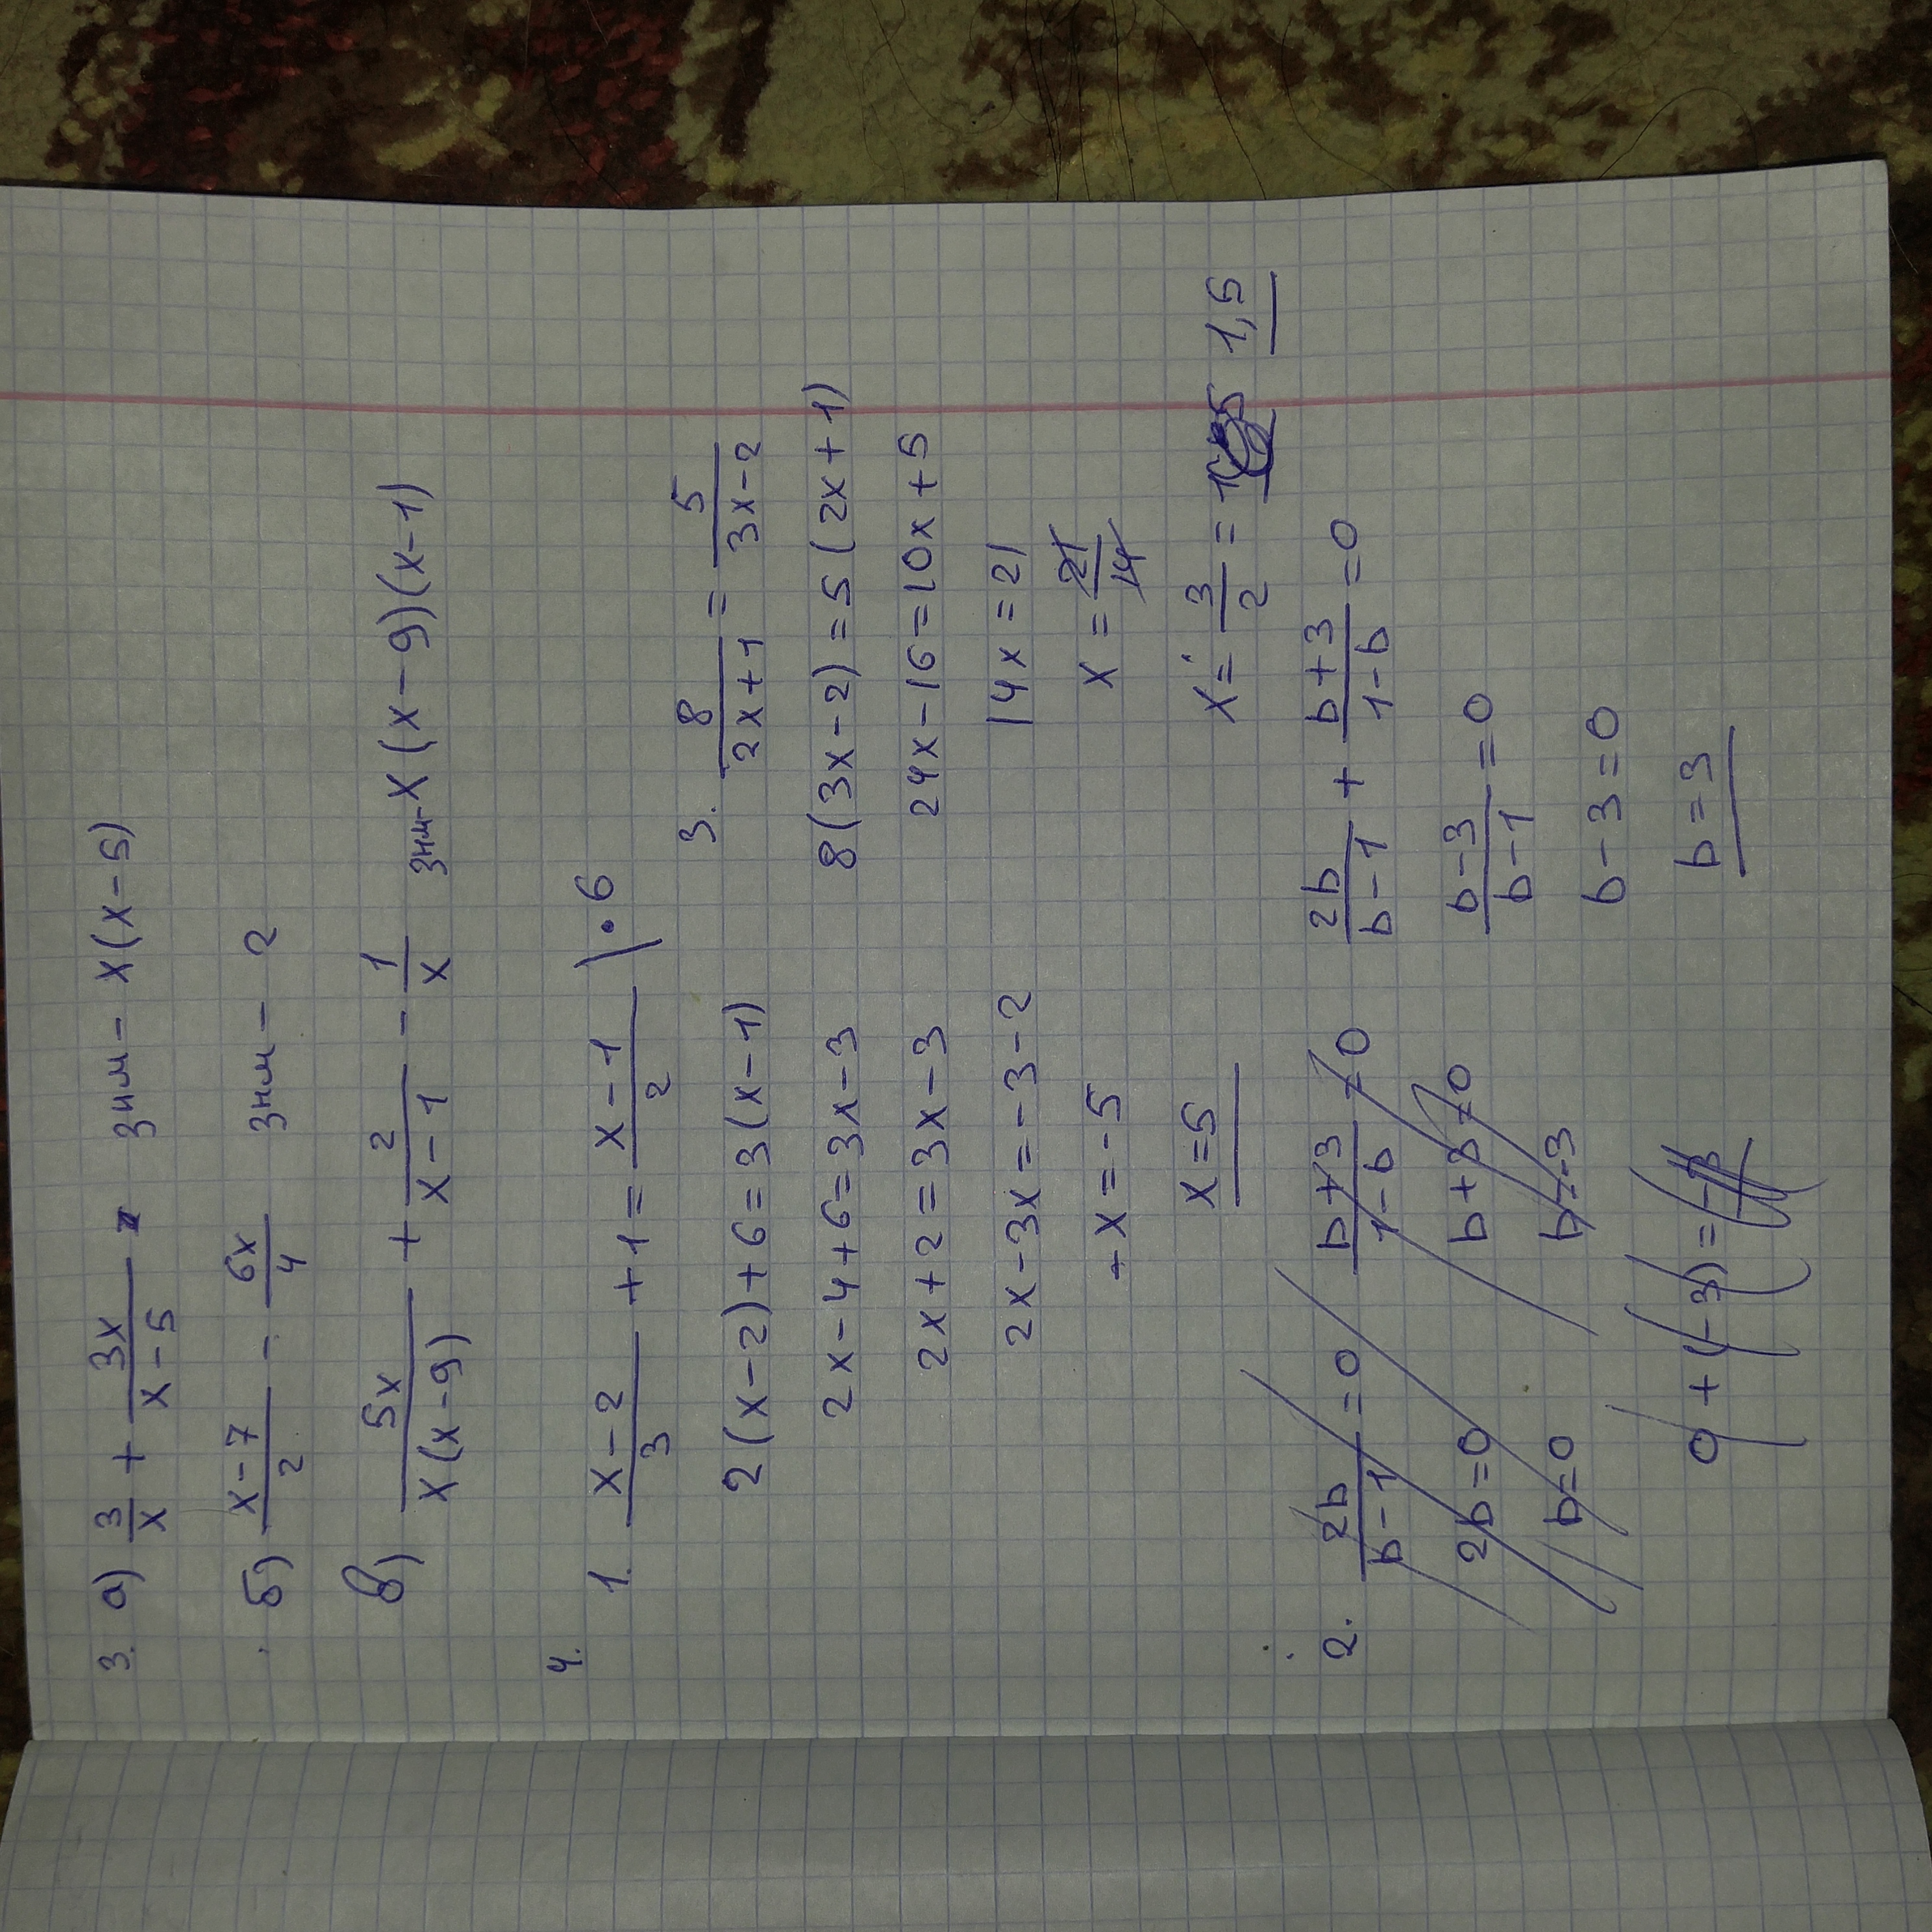 3. а) 3/x + 3x/(x-5) знм - x(x-5)
б) (x-7)/2 - 6x/4 знм - 2
в) 5x/(x(x-9)) + 2/(x-1) - 1/x знм - x(x-9)(x-1)
4.
1. (x-2)/3 + 1 = (x-1)/2 | · 6
2(x-2)+6=3(x-1)
2x-4+6=3x-3
2x+2=3x-3
2x-3x=-3-2
-x=-5
x=5
3. 8/(2x+1) = 5/(3x-2)
8(3x-2)=5(2x+1)
24x-16=10x+5
14x=21
x=21/14
x=3/2= 1,5
2. 2b/(b-1)=0 (b+3)/(1-b)≠0
2b=0 b+3≠0
b=0 b≠-3
0+(-3)=-3
2b/(b-1) + (b+3)/(1-b) =0
(b-3)/(b-1)=0
b-3=0
b=3